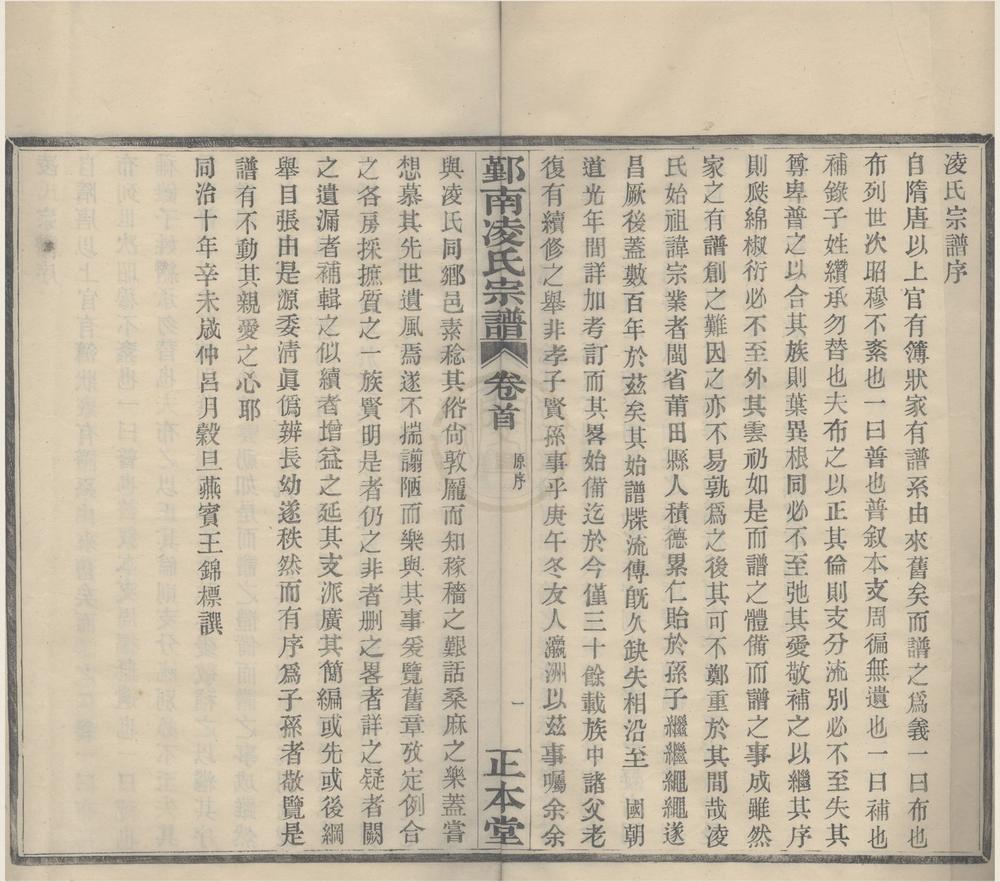 凌氏宗譜序
自隋唐以上官有簿狀家有譜系由來舊矣而譜之爲義一曰布也
布列世次昭穆不紊也一曰普也普叙本支周徧無遺也一曰補也
補錄子姓纘承勿替也夫布之以正其倫則支分流別必不至失其
尊卑普之以合其族則葉異根同必不至弛其愛敬補之以繼其序
則瓞綿椒衍必不至外其雲礽如是而譜之體備而譜之事成雖然
家之有譜創之難因之亦不易孰爲之後其可不鄭重於其間哉凌
氏始祖諱宗業者閩省莆田縣人積德累仁貽於孫子繼繼繩繩遂
昌厥後蓋數百年於茲矣其始譜牒流傳旣久缺失相沿至　國朝
道光年間詳加考訂而其畧始備迄於今僅三十餘載族中諸父老
復有續修之舉非孝子賢孫事乎庚午冬友人瀛洲以茲事囑余余
鄞南凌氏宗譜 卷首 原序 一 正本堂
與凌氏同鄉邑素稔其俗尙敦龐而知稼穡之艱話桑麻之樂蓋嘗
想慕其先世遺風焉遂不揣謭陋而樂與其事爰覽舊章攷定例合
之各房採摭質之一族賢明是者仍之非者删之畧者詳之疑者闕
之遺漏者補輯之似續者增益之延其支派廣其簡編或先或後綱
舉目張由是源委淸眞僞辨長幼遂秩然而有序爲子孫者敬覽是
譜有不動其親愛之心耶
同治十年辛未歲仲呂月穀旦燕賓王錦標譔